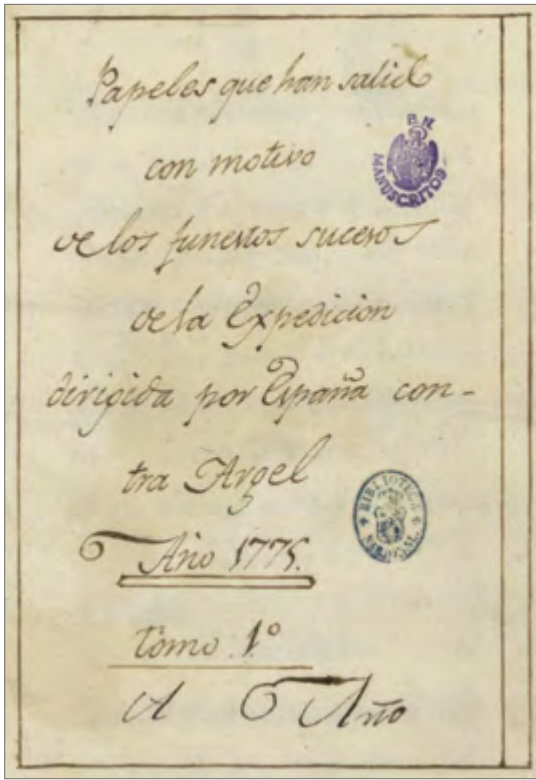 Papeles que han salido
B. N.
MANUSCRITOS
con motivo
de los funestos sucesos
de la Expedicion
dirigida por España con-
tra Argel
BIBLIOTECA
NACIONAL
Año 1775.
tomo 1º
A Año